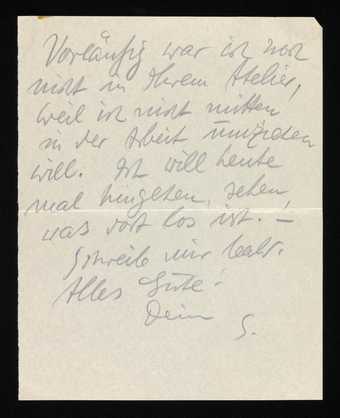 Vorläufig war ich noch
nicht in Ihrem Atelier,
weil ich nicht mitten
in der Arbeit umziehen
will. Ich will heute
mal hingehen, sehen,
was dort los ist. –
Schreib mir bald.
Alles Gute!
Dein
S.